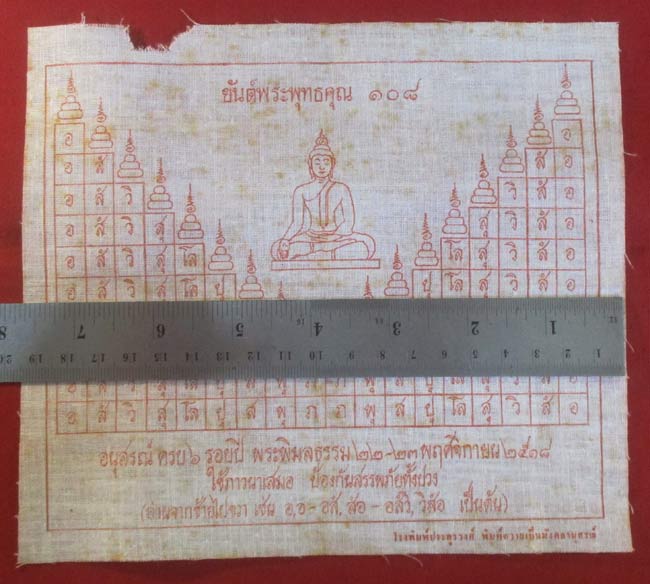 ยันต์พระพุทธคุณ ๑๐๘
อ อ
อ สั สั อ
อ สั วิ วิ สั อ
อ สั วิ สุ สุ วิ สั อ
อ สั วิ สุ โล โล สุ วิ สั อ
อ สั วิ สุ โล ปุ ปุ โล สุ วิ สั อ
8 7 6 5 4 3 2 1
20 19 18 17 16 15 14 13 12 11 10 9 8 7 6 5 4 3 2 1
อ สั วิ สุ โล ปุ ส พุ ภ ภ พุ ส ปุ โล สุ วิ สั อ
อ สั วิ สุ โล ปุ ส พุ ภ ภ พุ ส ปุ โล สุ วิ สั อ
อนุสรณ์ ครบ ๖ รอบปี พระพิมลธรรม ๒๒-๒๓ พฤศจิกายน ๒๕๑๘
ใช้ภาวนาเสมอ ป้องกันสรรพภัยทั้งปวง
(อ่านจากซ้ายไปขวา เช่น อ,อ - อสั, สัอ - อสัวิ, วิสัอ เป็นต้น)
โรงพิมพ์ประยูรวงศ์ พิมพ์ถวายเป็นมังคลานุสรณ์